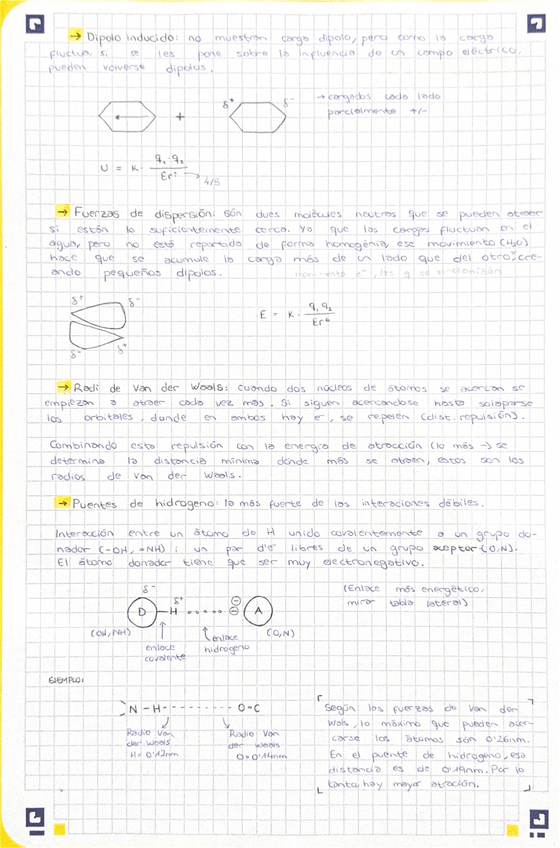 → Dipolo inducido: no muestran carga dipolo, pero como la carga
fluctua, si se les pone sobre la influencia de un campo eléctrico,
pueden volverse dipolos.
+
δ+ δ-
→ cargados cada lado
parcialmente +/-
U = K · q₁ · q₂ / Er
4/5
→ Fuerzas de dispersión: son dues molècules neutros que se pueden atraer
si están lo suficientemente cerca. Ya que las cargas fluctuan en el
alguh, pero no está repartida de forma homogénia, ese movimiento (H₂O)
hace que se acumule la carga más de un lado que del otro y cre-
ando pequeños dipolos.
δ+ δ-
δ- δ+
E = K · q₁ q₂ / Er⁶
→ Radi de Van der Waals: Cuando dos núcleos de átomos se acercan se
empiezan a atraer cada vez más. Si siguen acercandose hasta solaparse
los orbitales, donde en ambos hay e⁻, se repelen (dist. repulsión).
Combinando esta repulsión con la energia de atracción (lo más →) se
determina la distancia mínima donde más se atraen, estos son los
radios de van der Waals.
→ Puentes de hidrogeno: la más fuerte de las interaciones débiles.
Interacción entre un átomo de H unido covalentemente a un grupo do-
nador (-OH, =NH) i un par d'e⁻ libres de un grupo aceptor (O,N).
El átomo donador tiene que ser muy electronegativo.
δ- δ+
D - H ..... A
(OH, NH)
enlace
covalente
enlace
hidrogeno
(O,N)
(Enlace más energético,
mirar tabla lateral)
EJEMPLO:
N - H ---------- O=C
Radio Van
der Waals
H = 0'12nm
Radio Van
der Waals
O = 0'14nm
Según las fuerzas de Van der
Wals, lo máximo que pueden acer-
carse los átomos són 0'26nm.
En el puente de hidrogeno, esa
distancia es de 0'19nm. Por lo
tanto, hay mayor atración.